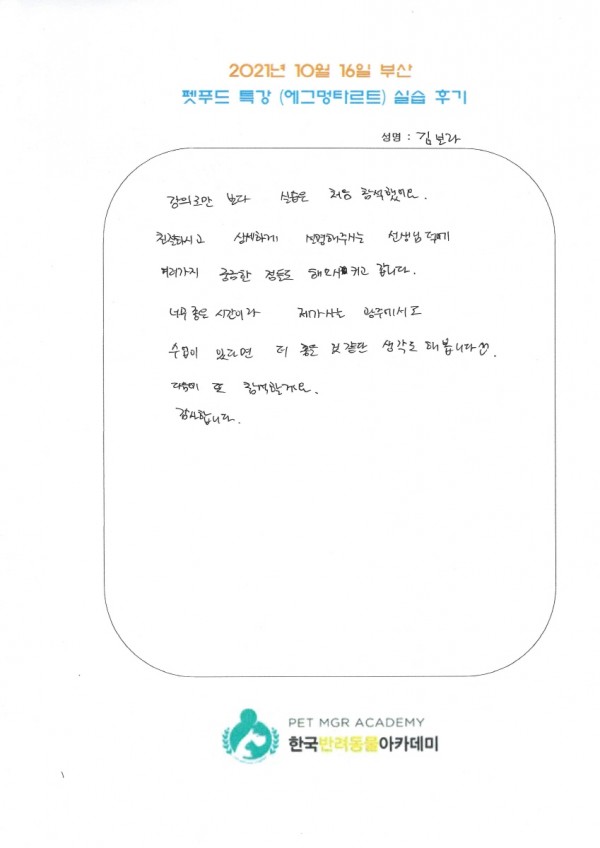 2021년 10월 16일 부산
펫푸드 특강 (에그멍타르트) 실습 후기
성명 : 김보라
강의로만 보다 실습은 처음 참석했어요.
친절하시고 상세하게 설명해주시는 선생님 덕에
여러가지 궁금한 점들도 해소시키고 갑니다.
너무 좋은 시간이라 제가사는 광주에서도
수업이 있다면 더 좋을 것 같단 생각도 해봅니다♡.
다음에 또 참석할게요.
감사합니다.
PET MGR ACADEMY
한국반려동물아카데미